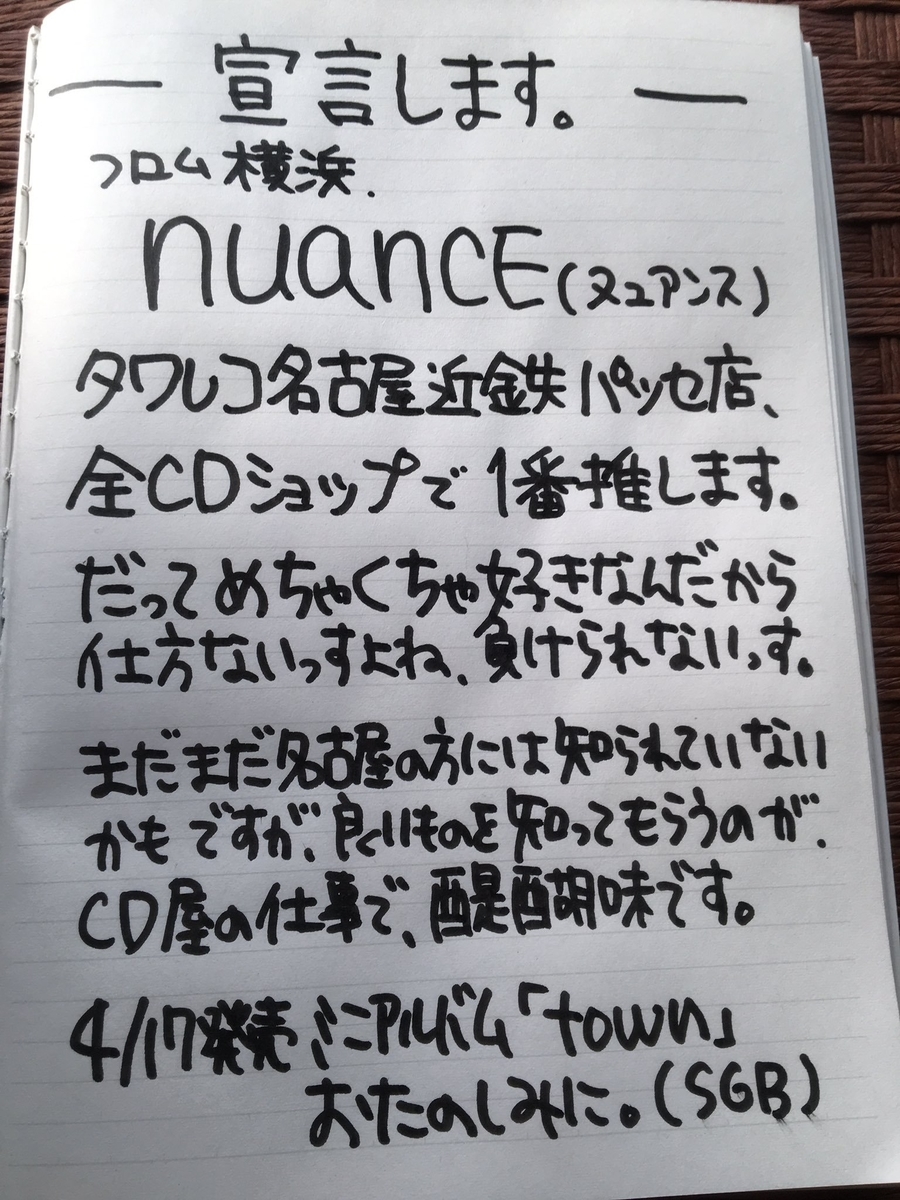 — 宣言します。 —
フロム横浜.
nuancE(ヌュアンス)
タワレコ名古屋近鉄パッセ店、
全CDショップで1番推します。
だってめちゃくちゃ好きなんだから
仕方ないっすよね、負けられないっす。
まだまだ名古屋の方には知られていない
かもですが、良いものを知ってもらうのが、
CD屋の仕事で、醍醐味です。
4/17発売ミニアルバム「town」
おたのしみに。(SGB)